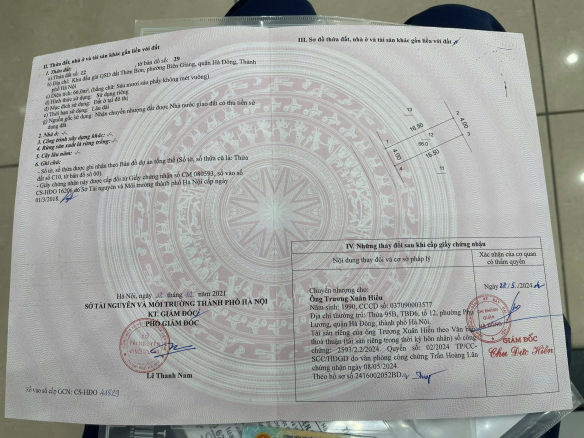 II. Thửa đất, nhà ở và tài sản khác gắn liền với đất
1. Thửa đất:
a) Thửa đất số: 12 , tờ bản đồ số: 29
b) Địa chỉ: Khu đấu giá QSD đất Thửa Bơn, phường Biên Giang, quận Hà Đông, Thành
phố Hà Nội
c) Diện tích: 66,0m², (bằng chữ: Sáu mươi sáu phẩy không mét vuông)
d) Hình thức sử dụng: Sử dụng riêng
đ) Mục đích sử dụng: Đất ở tại đô thị
e) Thời hạn sử dụng: Lâu dài
g) Nguồn gốc sử dụng: Nhận chuyển nhượng đất được Nhà nước giao đất có thu tiền sử
dụng đất
2. Nhà ở: -/-
3. Công trình xây dựng khác: -/-
4. Rừng sản xuất là rừng trồng: -/-
5. Cây lâu năm: -/-
6. Ghi chú:
- Số tờ, số thửa được ghi nhận theo Bản đồ dự án tổng thể (Số tờ, số thửa cũ là: Thửa
đất số C10, tờ bản đồ số 00).
- Giấy chứng nhận này được cấp đổi từ Giấy chứng nhận số CM 080593, số vào sổ
CS-HĐO 16206 do Sở Tài nguyên và Môi trường thành phố Hà Nội cấp ngày
01/3/2018.
Hà Nội, ngày tháng năm 2021
SỞ TÀI NGUYÊN VÀ MÔI TRƯỜNG THÀNH PHỐ HÀ NỘI
KT. GIÁM ĐỐC
PHÓ GIÁM ĐỐC
Lê Thanh Nam
Số vào sổ cấp GCN: CS-HĐO
III. Sơ đồ thửa đất, nhà ở và tài sản khác gắn liền với đất
13
2
16.50
1
12
66.0
4.00
4.00
3
16.50
4
11
IV. Những thay đổi sau khi cấp giấy chứng nhận
Nội dung thay đổi và cơ sở pháp lý
Xác nhận của cơ quan
có thẩm quyền
Chuyển nhượng cho:
Ông Trương Xuân Hiếu
Năm sinh: 1990, CCCD số: 037090003577
Địa chỉ thường trú: Thửa 95B, TBĐ6, tổ 12, phường Phú
Lương, quận Hà Đông, thành phố Hà Nội.
Tài sản riêng của ông Trương Xuân Hiếu theo Văn bản
thoả thuận (tài sản riêng trong thời kỳ hôn nhân) số công
chứng: 2593/2.2/2024, Quyển số: 02/2024 TP/CC-
SCC/HĐGD do văn phòng công chứng Trần Hoàng Lân
chứng nhận ngày 08/05/2024.
Theo hồ sơ số 2416002052BD
Ngày 28.5.2024
GIÁM ĐỐC
Chu Đức Hiển